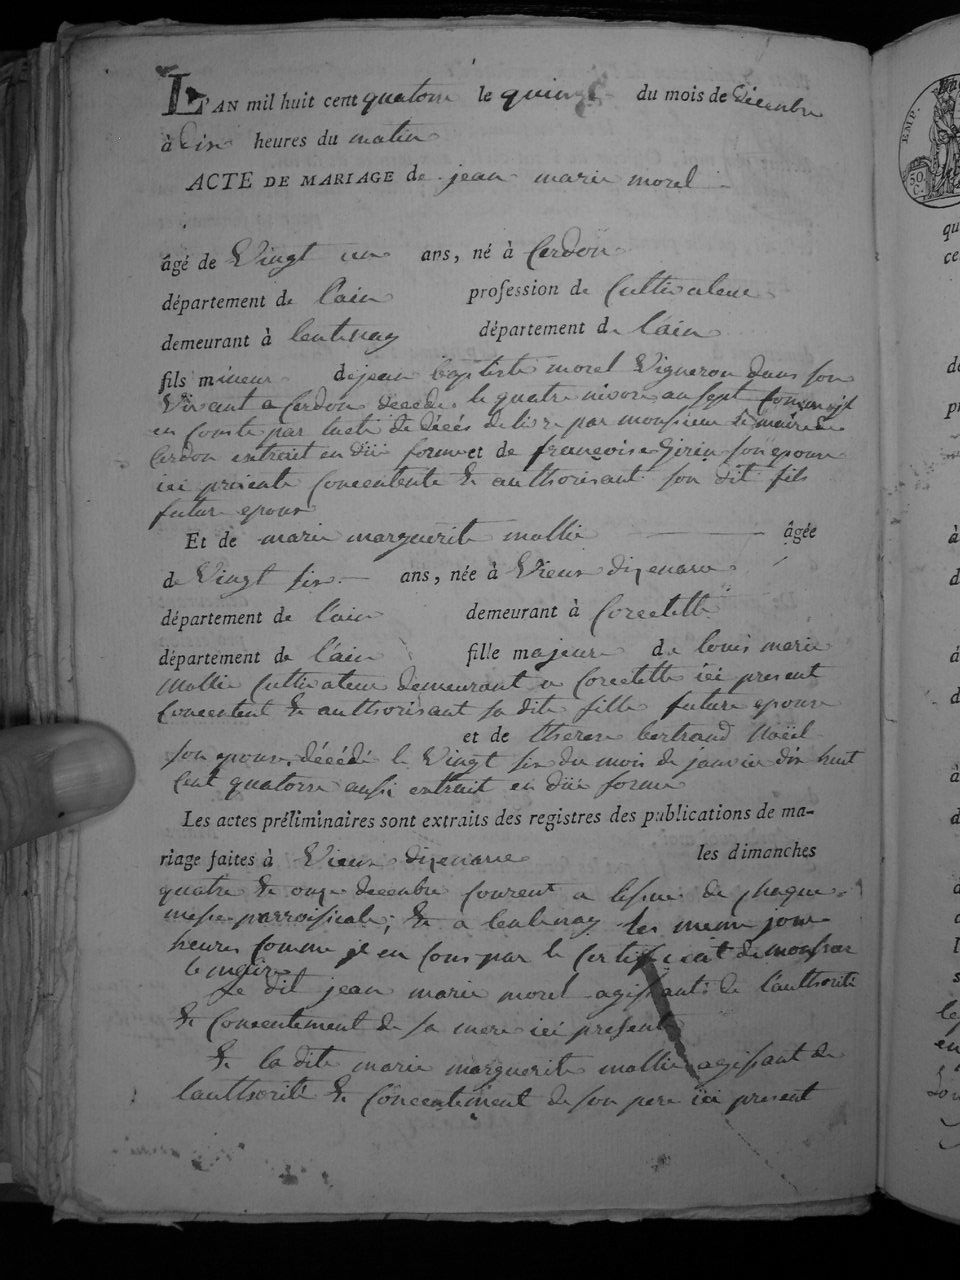 L'AN mil huit cent quatorze le quinze du mois de Décembre
à Dix heures du matin
ACTE DE MARIAGE de jean marie morel
âgé de Vingt un ans, né à Cerdon
département de l'ain profession de Cultivateur
demeurant à lentenay département de l'ain
fils mineur de jean baptiste morel Vigneron dans son
Vivant a Cerdon décédé le quatre nivose an sept comme il
en conste par lacte de décés délivré par monsieur le maire de
Cerdon extrait en düe forme et de françoise Girin son epouse
ici présente Concentente & authorisant son dit fils
futur epoux
Et de marie marguerite mollie âgée
de Vingt six ans, née à Vieux dizenave
département de l'ain demeurant à Corcelette
département de l'ain fille majeure de louis marie
mollie Cultivateur demeurant a Corcelette ici present
Concentent & authorisant sa dite fille future epouse
et de therese bertrand Noëil
son epouse, décédé le Vingt six du mois de janvier dix huit
Cent quatorze aussi extrait en düe forme
Les actes préliminaires sont extraits des registres des publications de ma-
riage faites à Vieux dizenave les dimanches
quatre & onze decembre Courent a lissue de chaque
messe parroissiale, & a lentenay les meme jour
heures comme il en cons par le Certificat de monsieur
le maire
Le dit jean marie morel agissant de l'authorité
& Concentement de sa mere ici presente
& la dite marie marguerite mollie agissant de
lauthorité & Concentement de son pere ici present
EMP.
50
C.